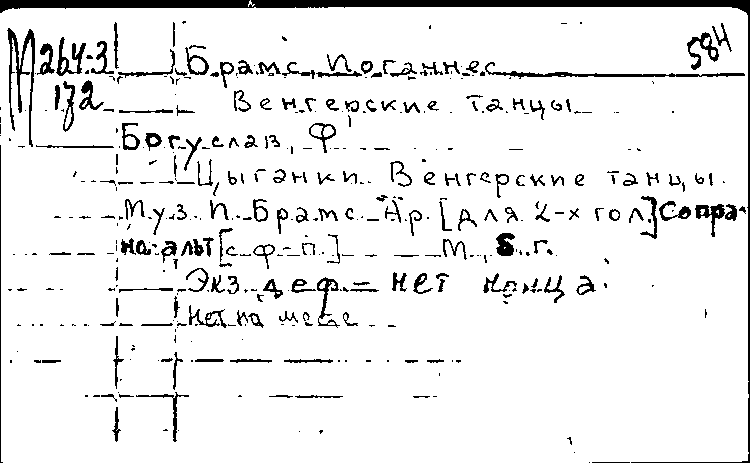 М 264-3 Брамс, Иоганнес 584
172 Венгерские танцы
Богуслав, Ф
Цыганки. Венгерские танцы.
Муз. И. Брамс. Ар. [для 2-х гол.] Сопра-
но-альт [с ф-п.] М., Б. г.
Экз. деф. - нет конца.
Нет на месте